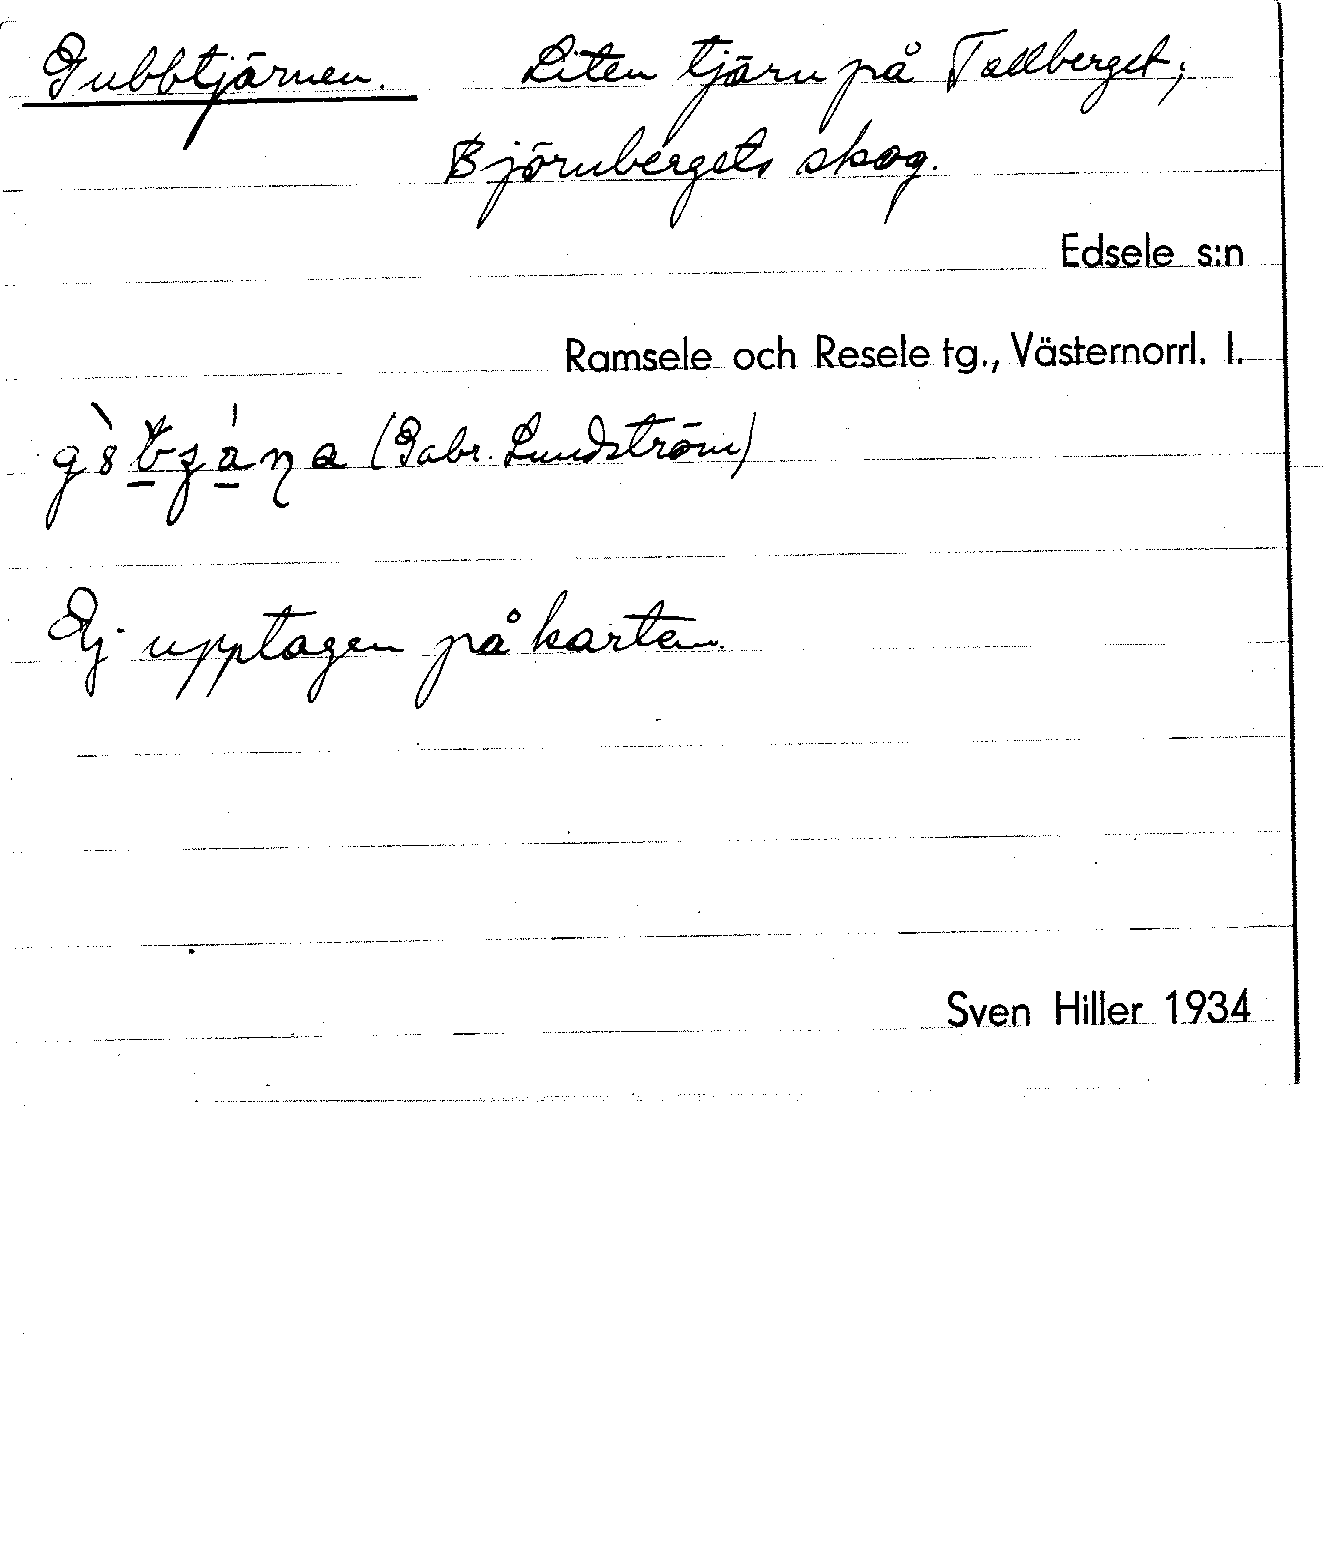 Gubbtjärnen. Liten tjärn på Tallberget;
Björnbergets skog.
Edsele s:n
Ramsele och Resele tg., Västernorrl. l.
(Gabr. Lundström)
Ej upptagen på kartan.
Sven Hiller 1934